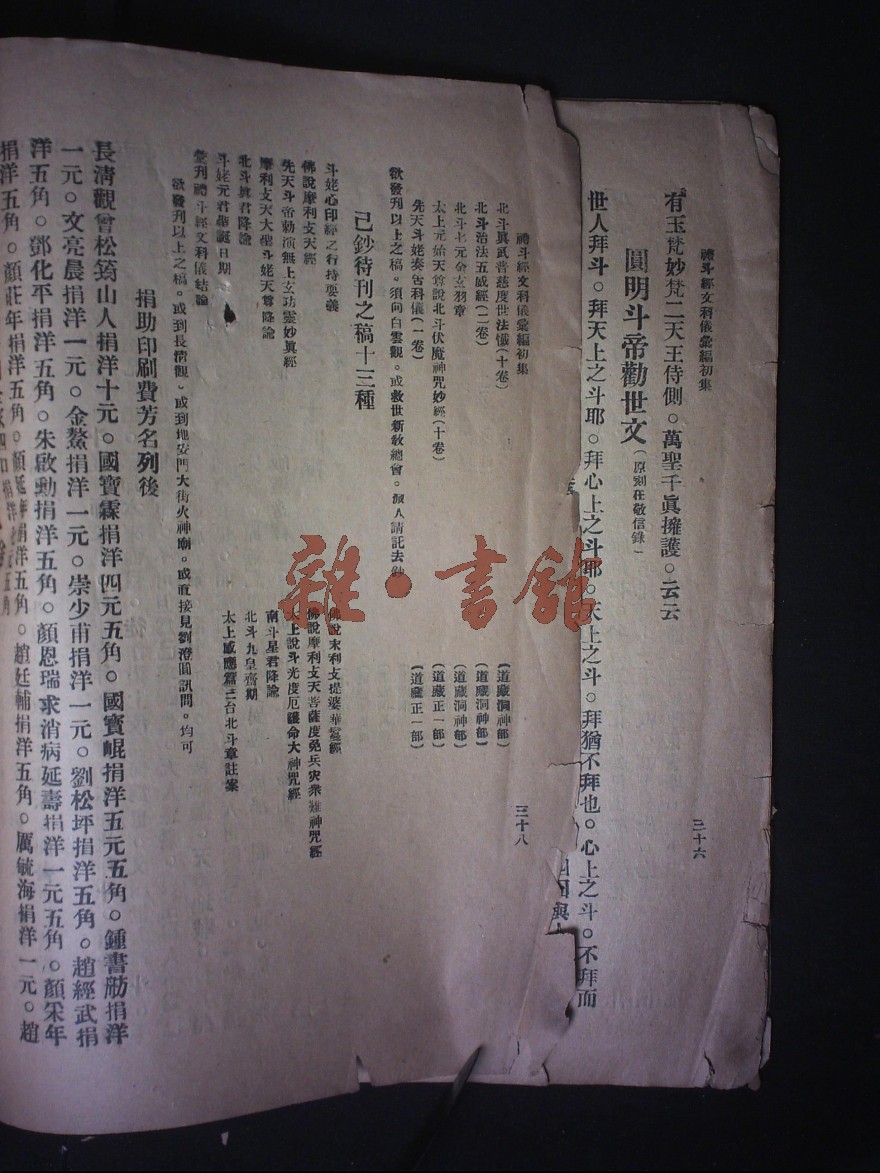 禮斗經文科儀彙編初集
三十六
有玉梵妙梵二天王侍側。萬聖千眞擁護。云云
圓明斗帝勸世文(原刻在敬信錄)
世人拜斗。拜天上之斗耶。拜心上之斗耶。天上之斗。拜猶不拜也。心上之斗。不拜而
禮斗經文科儀彙編初集
三十八
北斗眞武普慈度世法懺(十卷)(道藏洞神部)
北斗治法五威經(二卷)(道藏洞神部)
北斗七元金玄羽章(道藏洞神部)
太上元始天尊說北斗伏魔神咒妙經(十卷)(道藏正一部)
先天斗姥奏吿科儀(一卷)(道藏正一部)
欲發刊以上之稿。須向白雲觀。或救世新敎總會。派人請託去鈔
己鈔待刊之稿十三種
斗姥心印經之行持要義
佛說末利支提婆華鬘經
佛說摩利支天經
佛說摩利支天菩薩度免兵灾衆難神咒經
先天斗帝勅演無上玄功靈妙眞經
太上說斗光度厄護命大神咒經
摩利支天大聖斗姥天尊降諭
南斗星君降諭
北斗眞君降諭
北斗九皇齋期
斗姥元君華誕日期
太上感應篇三台北斗章註案
彙刊禮斗經文科儀結論
欲發刊以上之稿。或到長淸觀。或到地安門大街火神廟。或直接見劉澄圓訊問。均可
捐助印刷費芳名列後
長淸觀曾松筠山人捐洋十元。國寶霖捐洋四元五角。國寶崐捐洋五元五角。鍾書舫捐洋
一元。文亮晨捐洋一元。金鰲捐洋一元。崇少甫捐洋一元。劉松坪捐洋五角。趙經武捐
洋五角。鄧化平捐洋五角。朱啟勳捐洋五角。顏恩瑞求消病延壽捐洋一元五角。顏寀年
捐洋五角。顏莊年捐洋五角。顏延年捐洋五角。趙廷輔捐洋五角。厲毓海捐洋一元。趙
雜·書館